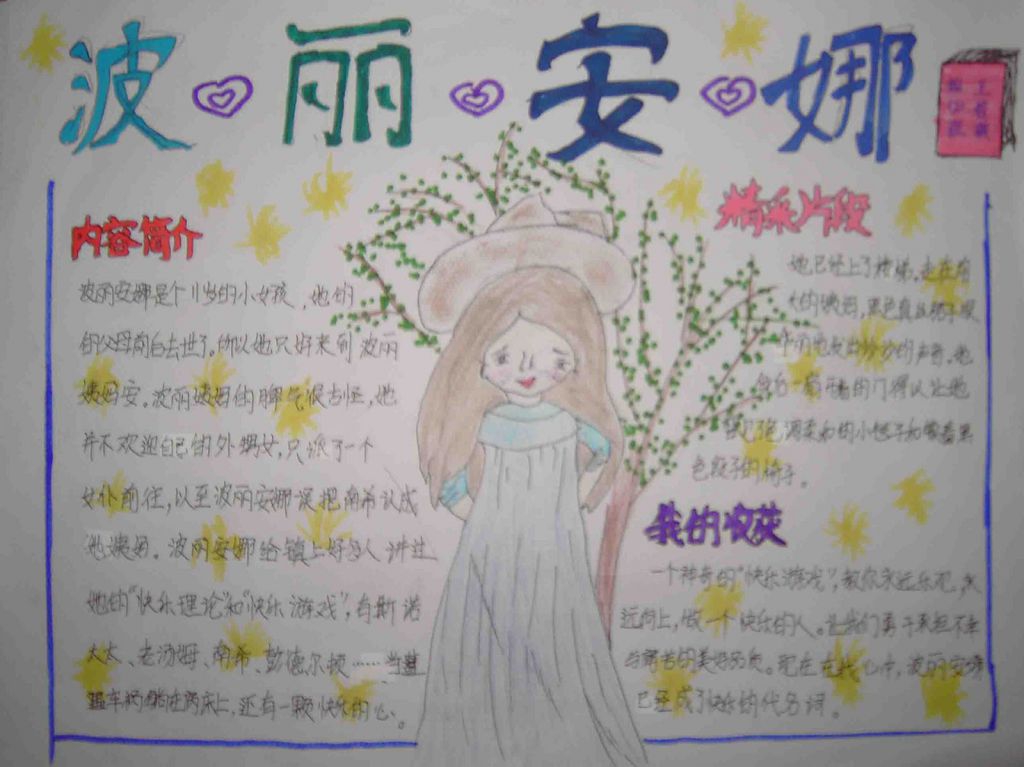 波丽安娜
内容简介
波丽安娜是个11岁的小女孩，她的
的父母前后去世了。所以她只好来到波丽
姨妈家。波丽姨妈的脾气很古怪，她
并不欢迎自己的外甥女，只派了一个
女仆前往，以至波丽安娜误把南希认成
她姨妈。波丽安娜给镇上好多人讲过
她的“快乐理论”和“快乐游戏”，有斯诺
太太、老汤姆、南希、彭德尔顿……当
车祸 在病床上，还有一颗快乐的心。
精采片段
她已经上了楼梯。走在前
大的姨妈，黑色真丝裙子
的声音。她
的门得以让她
柔和的小 子和 着黑
色 子的椅子。
我的收获
一个神奇的“快乐游戏”，教你永远乐观，永
远向上，做一个快乐的人。让我们勇于承担不幸
与痛苦的美好品质。现在在我心中，波丽安娜
已经成了快乐的代名词。